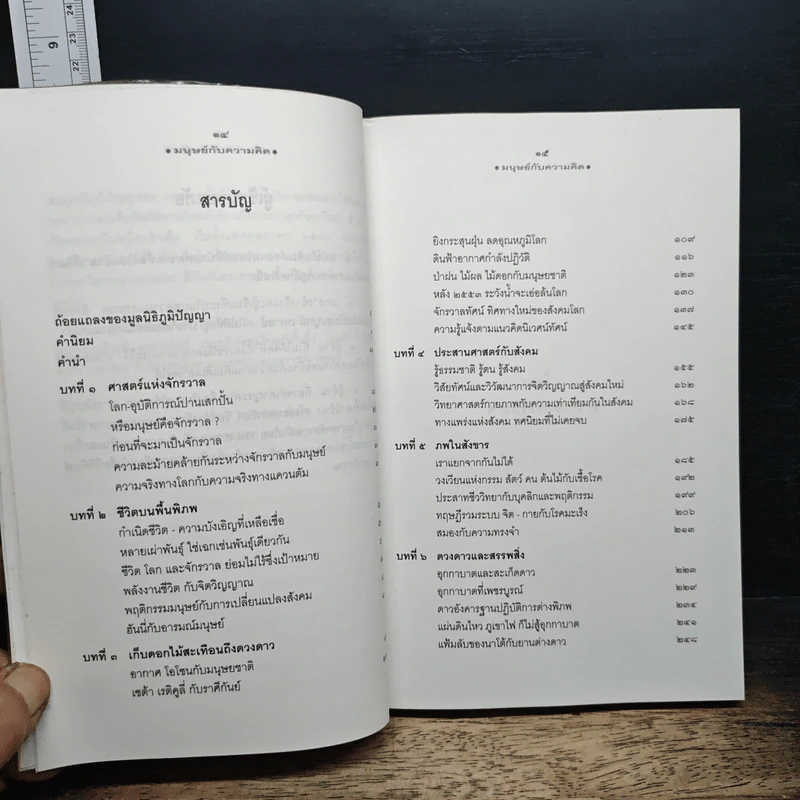 9
24
23
22
๑๔
• มนุษย์กับความคิด •
สารบัญ
ถ้อยแถลงของมูลนิธิภูมิปัญญา
คำนิยม
คำนำ
บทที่ ๑ ศาสตร์แห่งจักรวาล
โลก-อุบัติการณ์ปานเสกปั้น
หรือมนุษย์คือจักรวาล ?
ก่อนที่จะมาเป็นจักรวาล
ความละม้ายคล้ายกันระหว่างจักรวาลกับมนุษย์
ความจริงทางโลกกับความจริงทางแควนตัม
บทที่ ๒ ชีวิตบนพื้นพิภพ
กำเนิดชีวิต - ความบังเอิญที่เหลือเชื่อ
หลายเผ่าพันธุ์ ใช่เฉกเช่นพันธุ์เดียวกัน
ชีวิต โลก และจักรวาล ย่อมไม่ไร้ซึ่งเป้าหมาย
พลังงานชีวิต กับจิตวิญญาณ
พฤติกรรมมนุษย์กับการเปลี่ยนแปลงสังคม
ฮันนี่กับอารมณ์มนุษย์
บทที่ ๓ เก็บดอกไม้สะเทือนถึงดวงดาว
อากาศ โอโซนกับมนุษยชาติ
เซต้า เรติคูลี่ กับราศีกันย์
๑๕
• มนุษย์กับความคิด •
ยิงกระสุนฝุ่น ลดอุณหภูมิโลก ๑๐๙
ดินฟ้าอากาศกำลังปฏิวัติ ๑๑๖
ป่าฝน ไม้ผล ไม้ดอกกับมนุษยชาติ ๑๒๓
หลัง ๒๕๕๓ ระวังน้ำจะเอ่อล้นโลก ๑๓๐
จักรวาลทัศน์ ทิศทางใหม่ของสังคมโลก ๑๓๗
ความรู้แจ้งตามแนวคิดนิเวศน์ทัศน์ ๑๔๕
บทที่ ๔ ประสานศาสตร์กับสังคม
รู้ธรรมชาติ รู้ตน รู้สังคม ๑๕๕
วิสัยทัศน์และวิวัฒนาการจิตวิญญาณสู่สังคมใหม่ ๑๖๒
วิทยาศาสตร์กายภาพกับความเท่าเทียมกันในสังคม ๑๖๘
ทางแพร่งแห่งสังคม ทศนิยมที่ไม่เคยจบ ๑๗๕
บทที่ ๕ ภพในสังขาร
เราแยกจากกันไม่ได้ ๑๘๕
วงเวียนแห่งกรรม สัตว์ คน ต้นไม้กับเชื้อโรค ๑๙๒
ประสาทชีววิทยากับบุคลิกและพฤติกรรม ๑๙๙
ทฤษฎีรวมระบบ จิต - กายกับโรคมะเร็ง ๒๐๖
สมองกับความทรงจำ ๒๑๓
บทที่ ๖ ดวงดาวและสรรพสิ่ง
อุกกาบาตและสะเก็ดดาว ๒๒๓
อุกกาบาตที่เพชรบูรณ์ ๒๒๙
ดาวอังคารฐานปฏิบัติการต่างพิภพ ๒๓๔
แผ่นดินไหว ภูเขาไฟ ก็ไม่สู้อุกกาบาต ๒๔๑
แฟ้มลับของนาโต้กับยานต่างดาว ๒๔๘